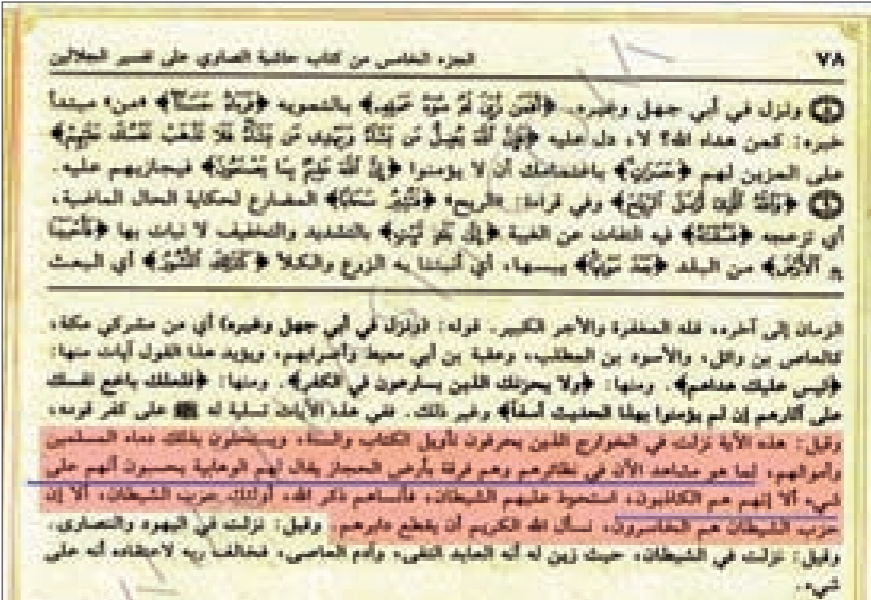 ٧٨ الجزء الخامس من كتاب حاشية الصاوي على تفسير الجلالين
ونزل في أبي جهل وغيره. ﴿أَفَمَن زُيِّنَ لَهُ سُوءُ عَمَلِهِ﴾ بالتمويه ﴿فَرَآهُ حَسَنًا﴾ «من» مبتدأ
خبره: كمن هداه الله؟ لا، دل عليه ﴿فَإِنَّ اللَّهَ يُضِلُّ مَن يَشَاءُ وَيَهْدِي مَن يَشَاءُ فَلَا تَذْهَبْ نَفْسُكَ عَلَيْهِمْ﴾
على المزين لهم ﴿حَسَرَاتٍ﴾ باغتمامك أن لا يؤمنوا ﴿إِنَّ اللَّهَ عَلِيمٌ بِمَا يَصْنَعُونَ﴾ فيجازيهم عليه.
﴿وَاللَّهُ الَّذِي أَرْسَلَ الرِّيَاحَ﴾ وفي قراءة: «الريح» ﴿فَتُثِيرُ سَحَابًا﴾ المضارع لحكاية الحال الماضية،
أي تزعجه ﴿فَسُقْنَاهُ﴾ فيه التفات عن الغيبة ﴿إِلَى بَلَدٍ مَّيِّتٍ﴾ بالتشديد والتخفيف لا نبات بها ﴿فَأَحْيَيْنَا
بِهِ الْأَرْضَ﴾ من البلد ﴿بَعْدَ مَوْتِهَا﴾ يبسها، أي أنبتنا به الزرع والكلأ ﴿كَذَلِكَ النُّشُورُ﴾ أي البعث
الزمان إلى آخره، فله المغفرة والأجر الكبير. قوله: (ونزل في أبي جهل وغيره) أي من مشركي مكة،
كالعاص بن وائل، والأسود بن المطلب، وعقبة بن أبي معيط وأضرابهم، ويؤيد هذا القول آيات منها:
﴿ليس عليك هداهم﴾. ومنها: ﴿ولا يحزنك الذين يسارعون في الكفر﴾. ومنها: ﴿فلعلك باخع نفسك
على آثارهم إن لم يؤمنوا بهذا الحديث أسفاً﴾ وغير ذلك. ففي هذه الآيات تسلية له ﷺ على كفر قومه،
وقيل: هذه الآية نزلت في الخوارج الذين يحرفون تأويل الكتاب والسنة، ويستحلون بذلك دماء المسلمين
وأموالهم، لما هو مشاهد الآن في نظائرهم وهم فرقة بأرض الحجاز يقال لهم الوهابية يحسبون أنهم على
شيء ألا إنهم هم الكاذبون، استحوذ عليهم الشيطان، فأنساهم ذكر الله، أولئك حزب الشيطان، ألا إن
حزب الشيطان هم الخاسرون، نسأل الله الكريم أن يقطع دابرهم. وقيل: نزلت في اليهود والنصارى،
وقيل: نزلت في الشيطان، حيث زين له أنه العابد التقي، وآدم العاصي، فخالف ربه لاعتقاده أنه على
شيء.